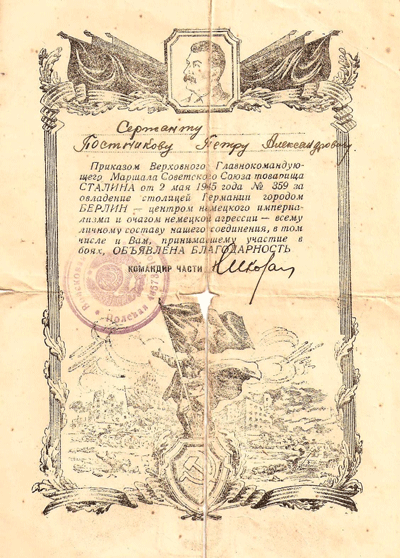 Сержанту
Постникову Петру Александровичу
Приказом Верховного Главнокомандую-
щего Маршала Советского Союза товарища
СТАЛИНА от 2 мая 1945 года № 359 за
овладение столицей Германии городом
БЕРЛИН — центром немецкого империа-
лизма и очагом немецкой агрессии — всему
личному составу нашего соединения, в том
числе и Вам, принимавшему участие в
боях, ОБЪЯВЛЕНА БЛАГОДАРНОСТЬ
КОМАНДИР ЧАСТИ
Полевая